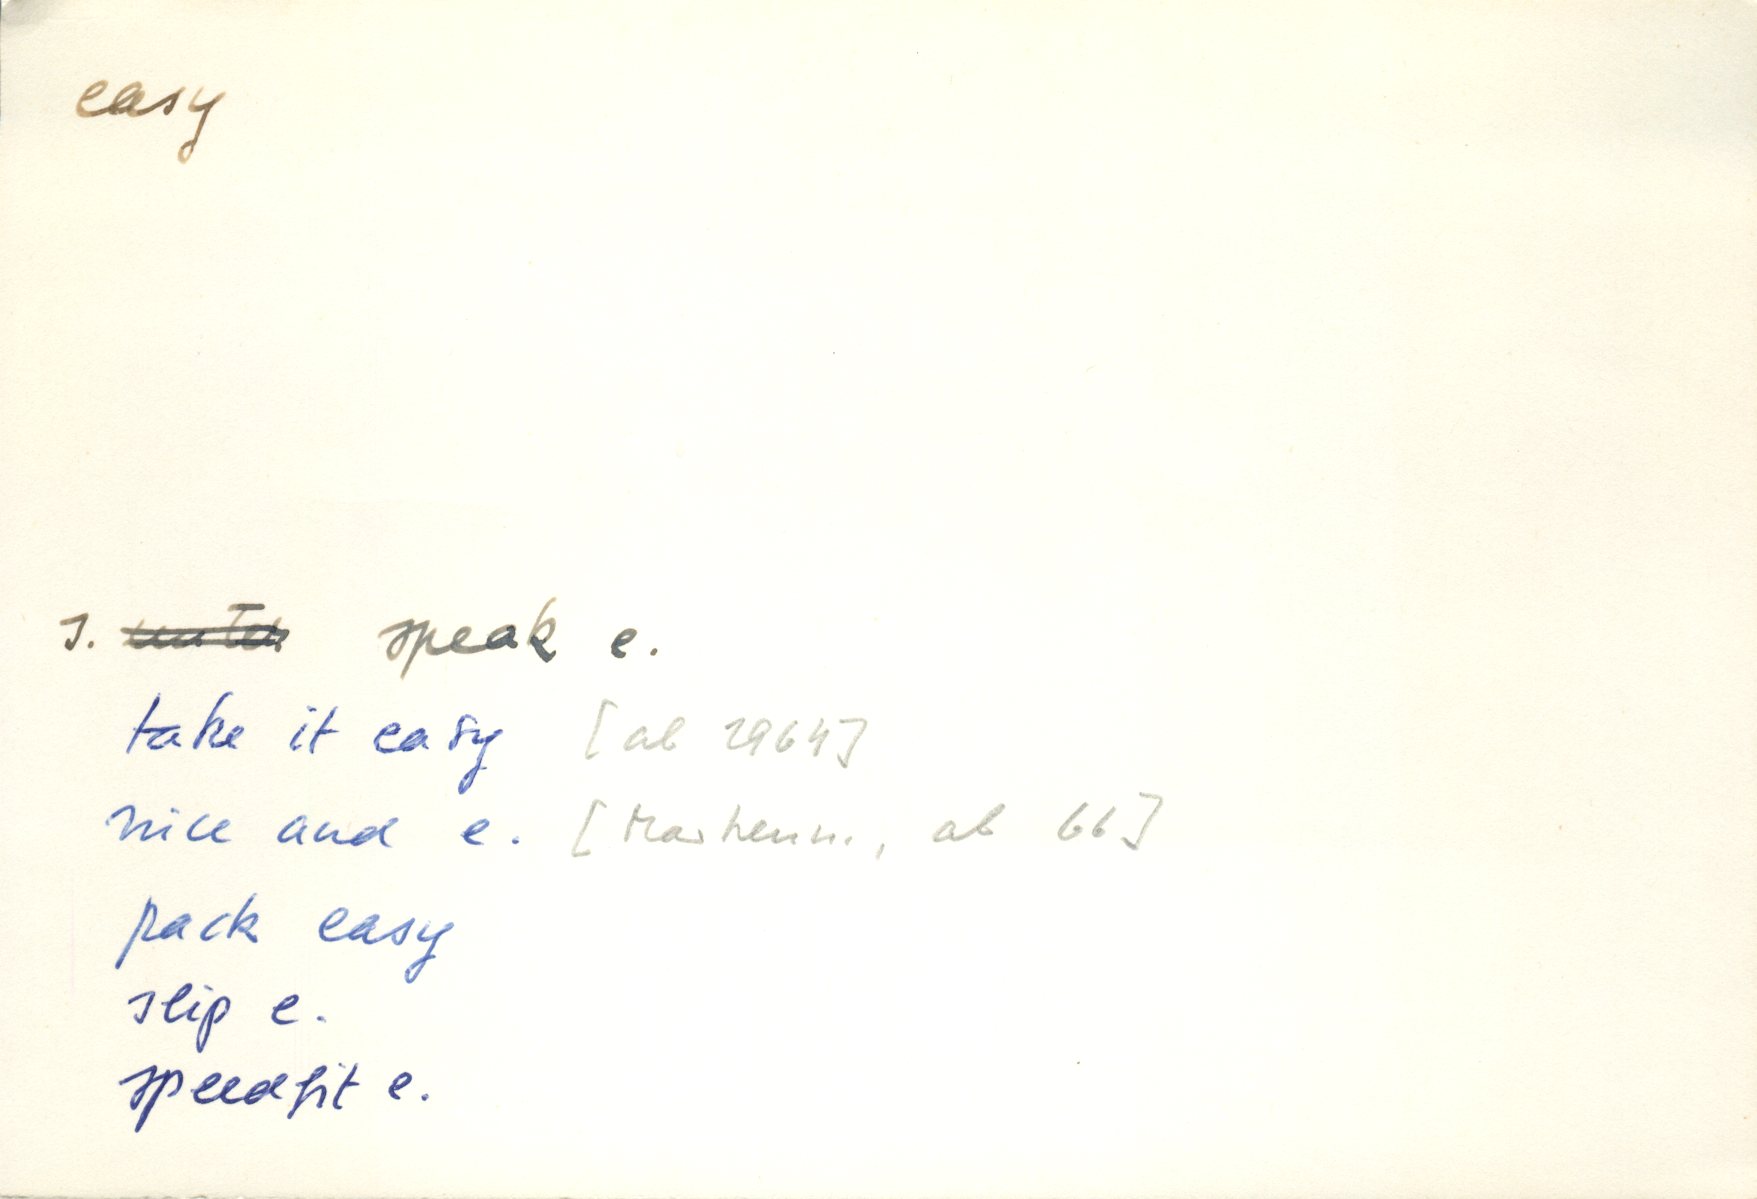 easy
s. unter speak e.
take it easy [ab 1964]
nice and e. [Markenn., ab 66]
pack easy
slip e.
speedfit e.